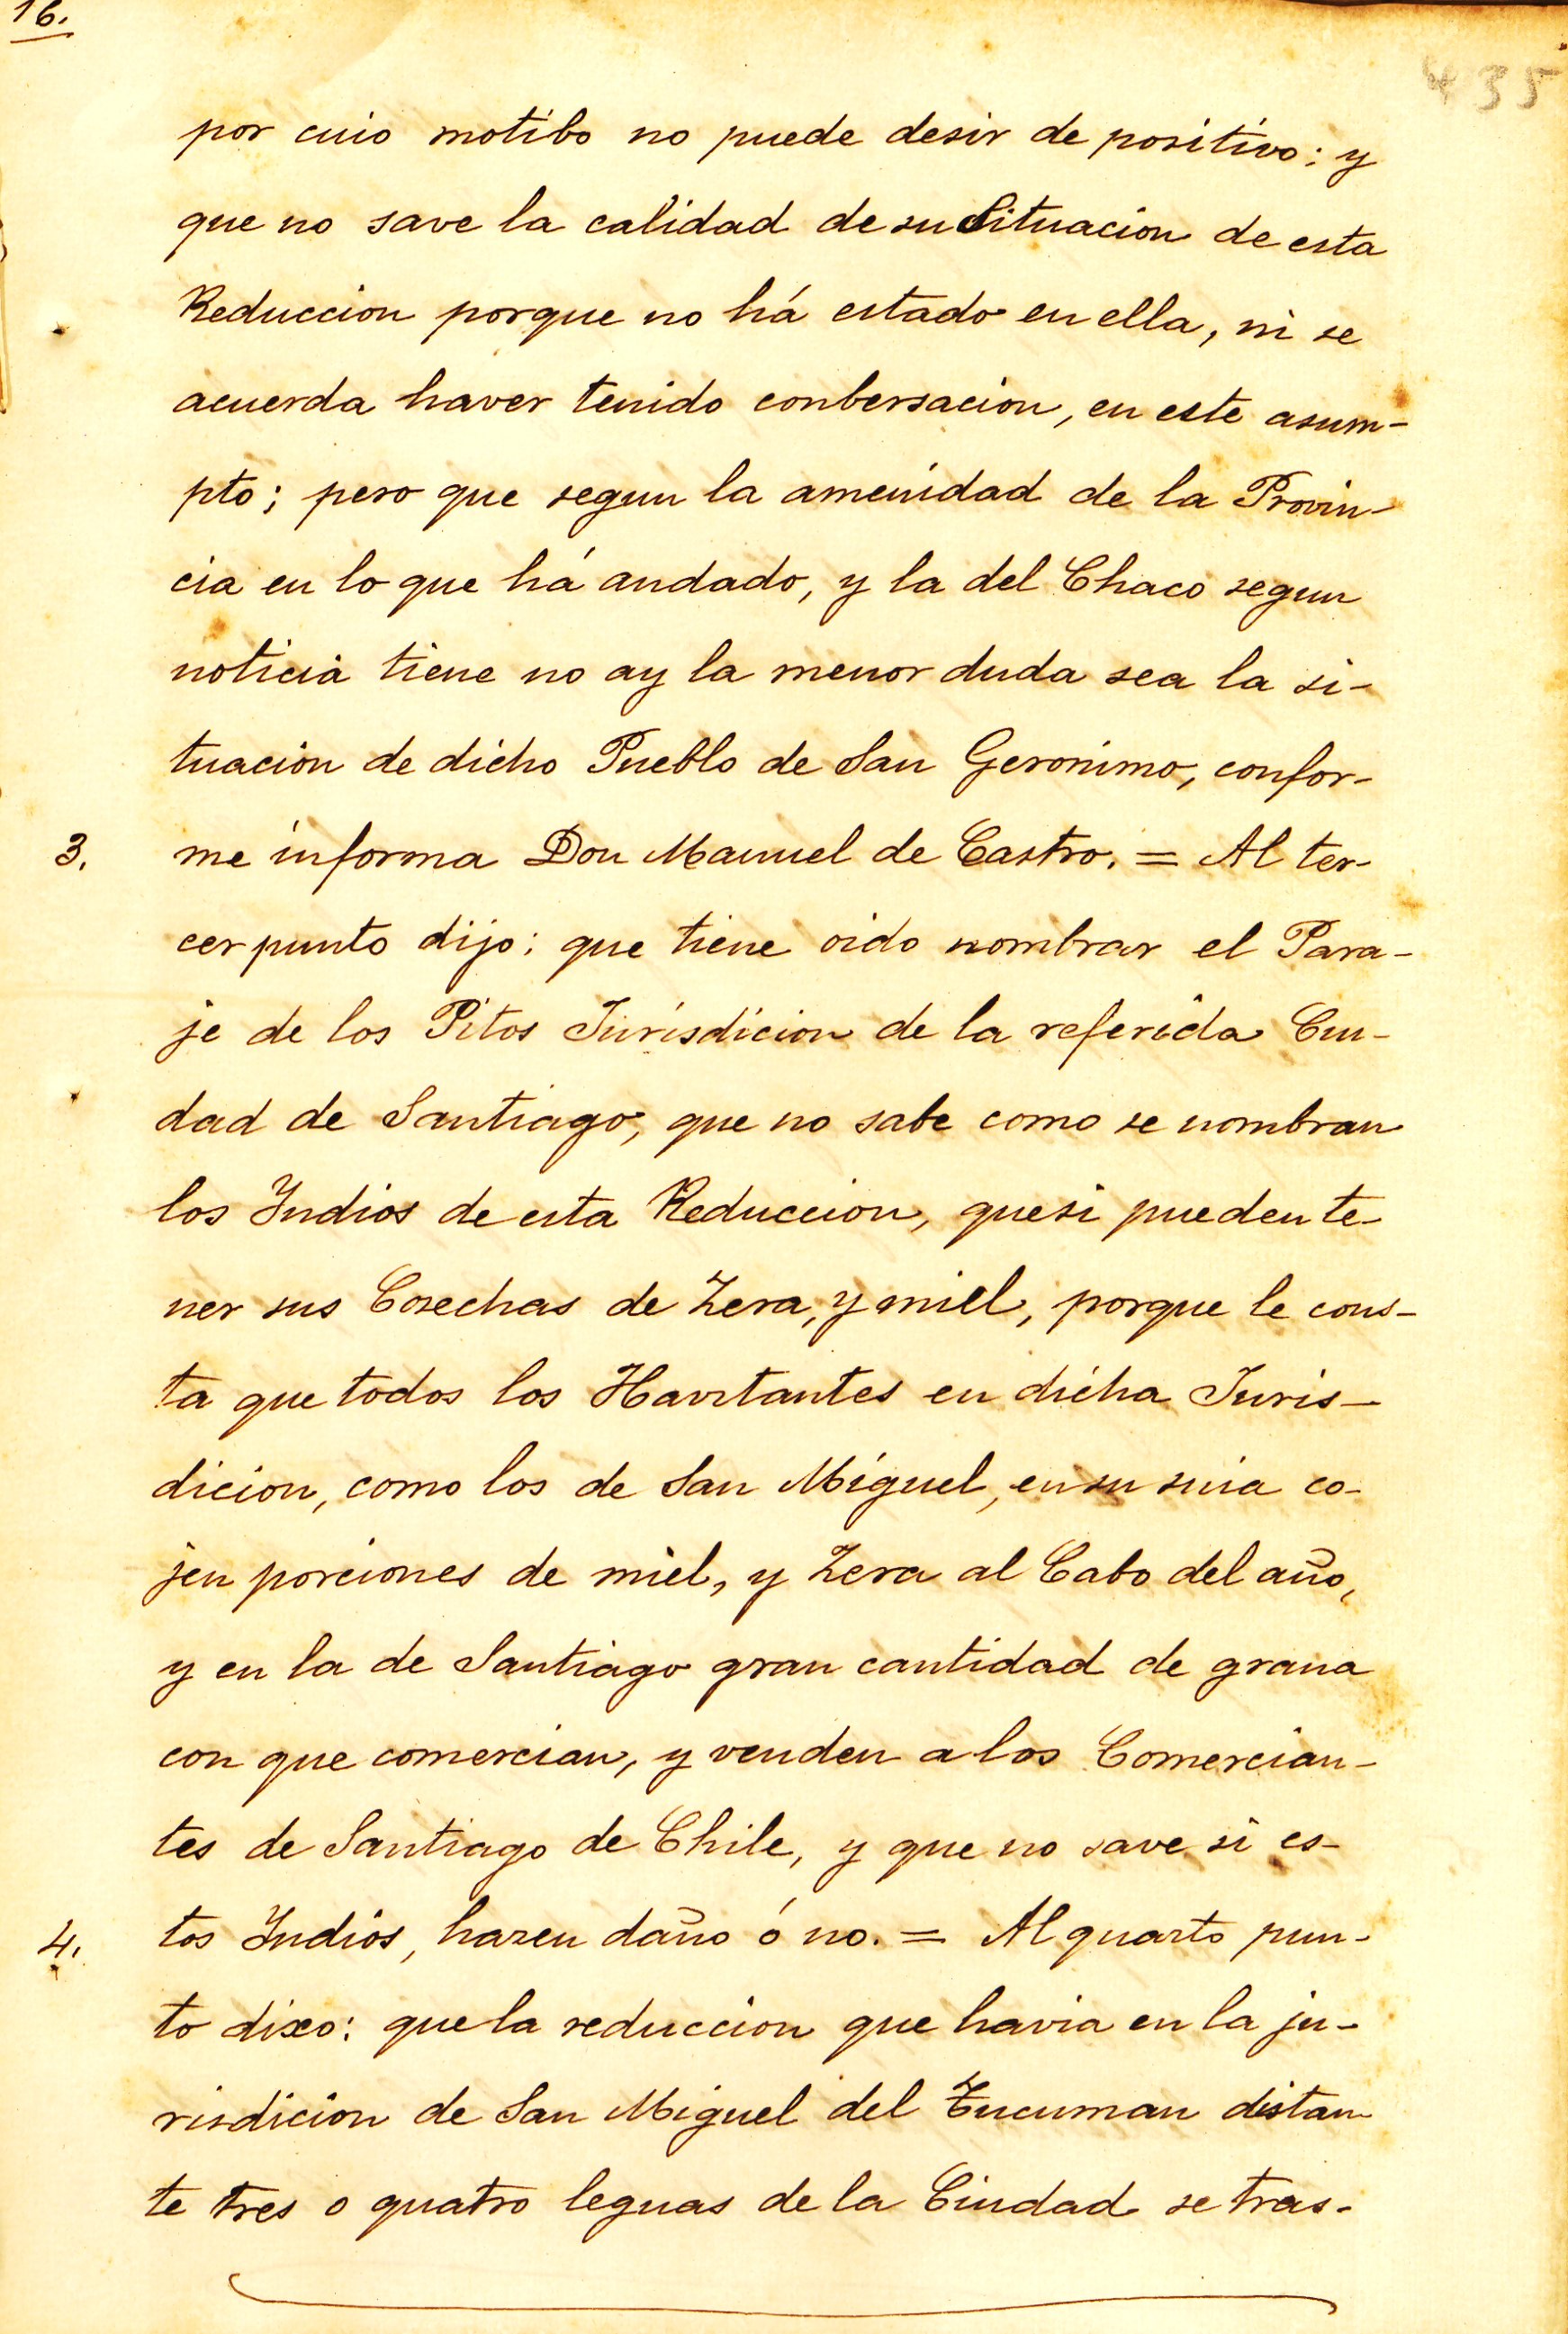 16.
435
por cuio motibo no puede desir de positivo: y
que no save la calidad de su Situacion de esta
Reduccion porque no há estado en ella, ni se
acuerda haver tenido conbersacion, en este asum-
pto; pero que segun la amenidad de la Provin-
cia en lo que há andado, y la del Chaco segun
noticia tiene no ay la menor duda sea la si-
tuacion de dicho Pueblo de San Geronimo, confor-
3. me informa Don Manuel de Castro. = Al ter-
cer punto dijo: que tiene oido nombrar el Para-
je de los Pitos Jurisdicion de la referida Ciu-
dad de Santiago, que no sabe como se nombran
los Indios de esta Reduccion, que si pueden te-
ner sus Cosechas de Zera, y miel, porque le cons-
ta que todos los Havitantes en dicha Juris-
dicion, como los de San Miguel, en su
 co-
jen porciones de miel, y Zera al Cabo del año,
y en la de Santiago gran cantidad de grana
con que comercian, y venden a los Comercian-
tes de Santiago de Chile, y que no save si es-
4. tos Indios, hazen daño ó no. = Al quarto pun-
to dixo: que la reduccion que havia en la ju-
risdicion de San Miguel del Tucuman distan
te tres o quatro leguas de la Ciudad se tras-